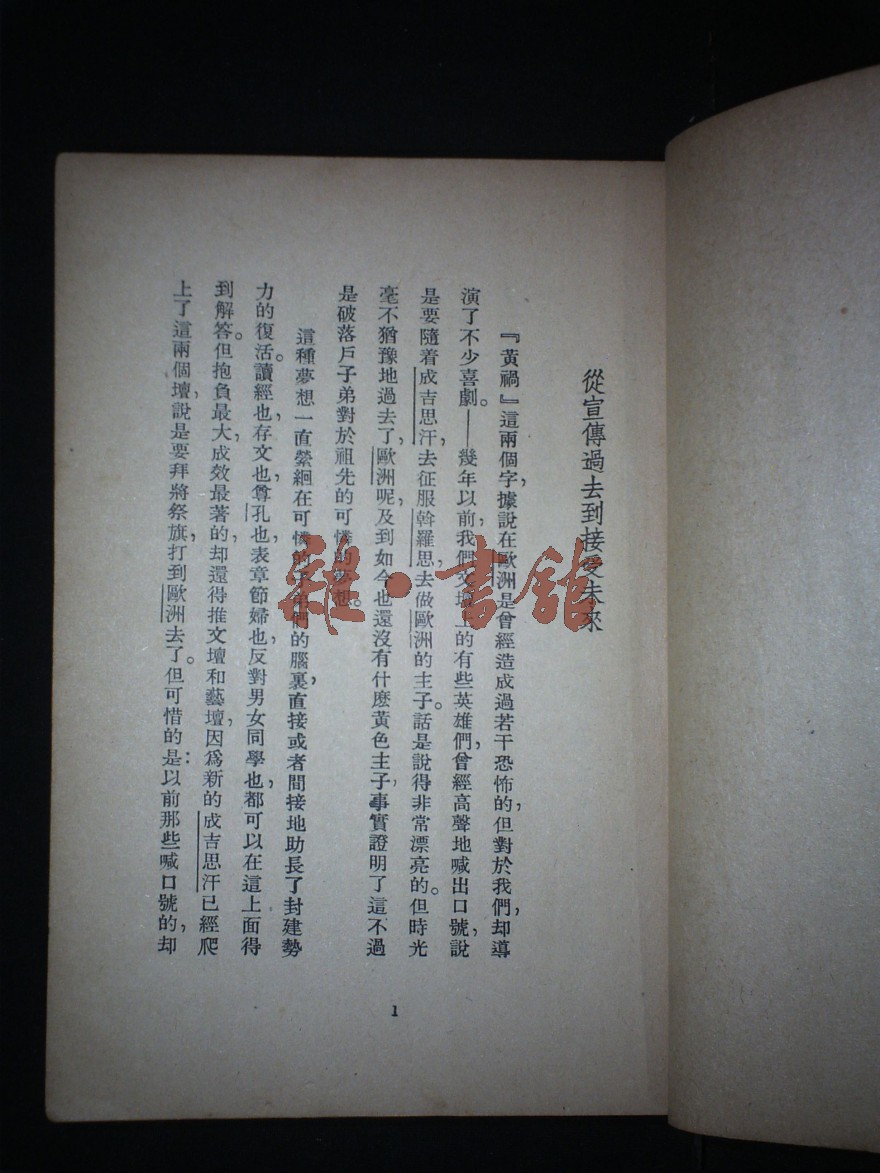 從宣傳過去到接受未來
『黃禍』這兩個字，據說在歐洲是曾經造成過若干恐怖的，但對於我們，却導
演了不少喜劇。——幾年以前，我們文壇上的有些英雄們，曾經高聲地喊出口號，說
是要隨着成吉思汗，去征服斡羅思，去做歐洲的主子。話是說得非常漂亮的。但時光
毫不猶豫地過去了，歐洲呢，及到如今也還沒有什麽黃色主子，事實證明了這不過
是破落戶子弟對於祖先的可憐的夢想。
這種夢想一直縈細在可憐的子弟們的腦裏，直接或者間接地助長了封建勢
力的復活。讀經也，存文也，尊孔也，表章節婦也，反對男女同學也，都可以在這上面得
到解答。但抱負最大，成效最著的，却還得推文壇和藝壇，因爲新的成吉思汗已經爬
上了這兩個壇，說是要拜將祭旗，打到歐洲去了。但可惜的是：以前那些喊口號的，却
1
雜·書館